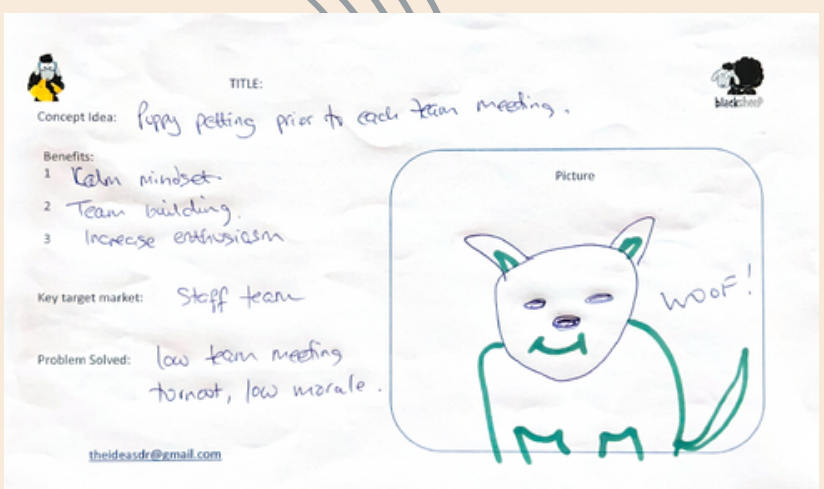 TITLE:
blacksheep
Concept Idea: Puppy petting prior to each team meeting.
Benefits:
1 Kalm mindset.
2 Team building.
3 Increase enthusiasm
Picture
WOOF!
Key target market: Staff team
Problem Solved: low team meeting
turnout, low morale.
theideasdr@gmail.com